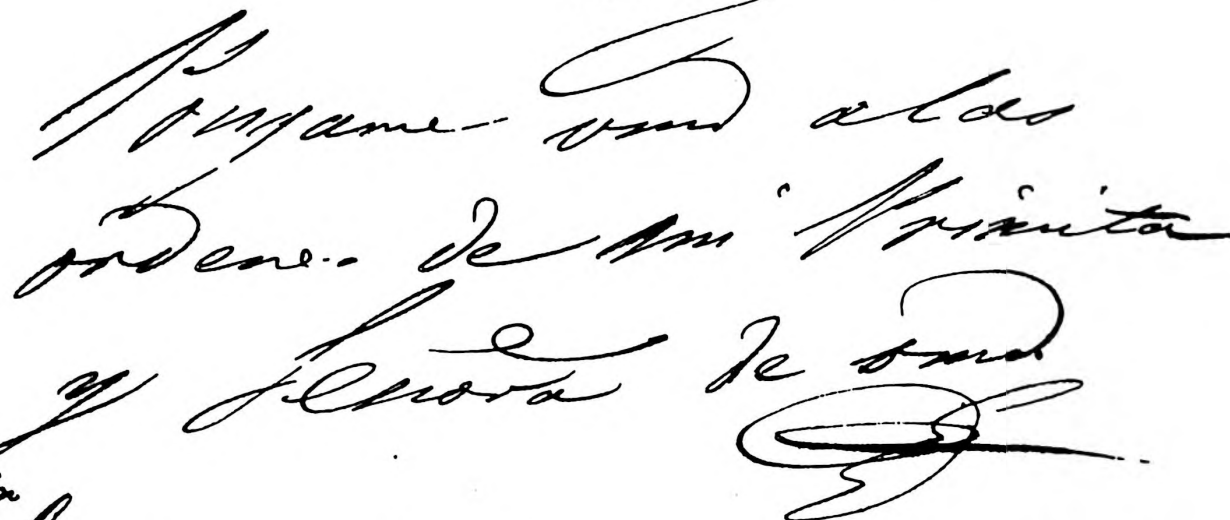 Pongame vmd alas
ordenes de mi Primita
y Señora de vmd